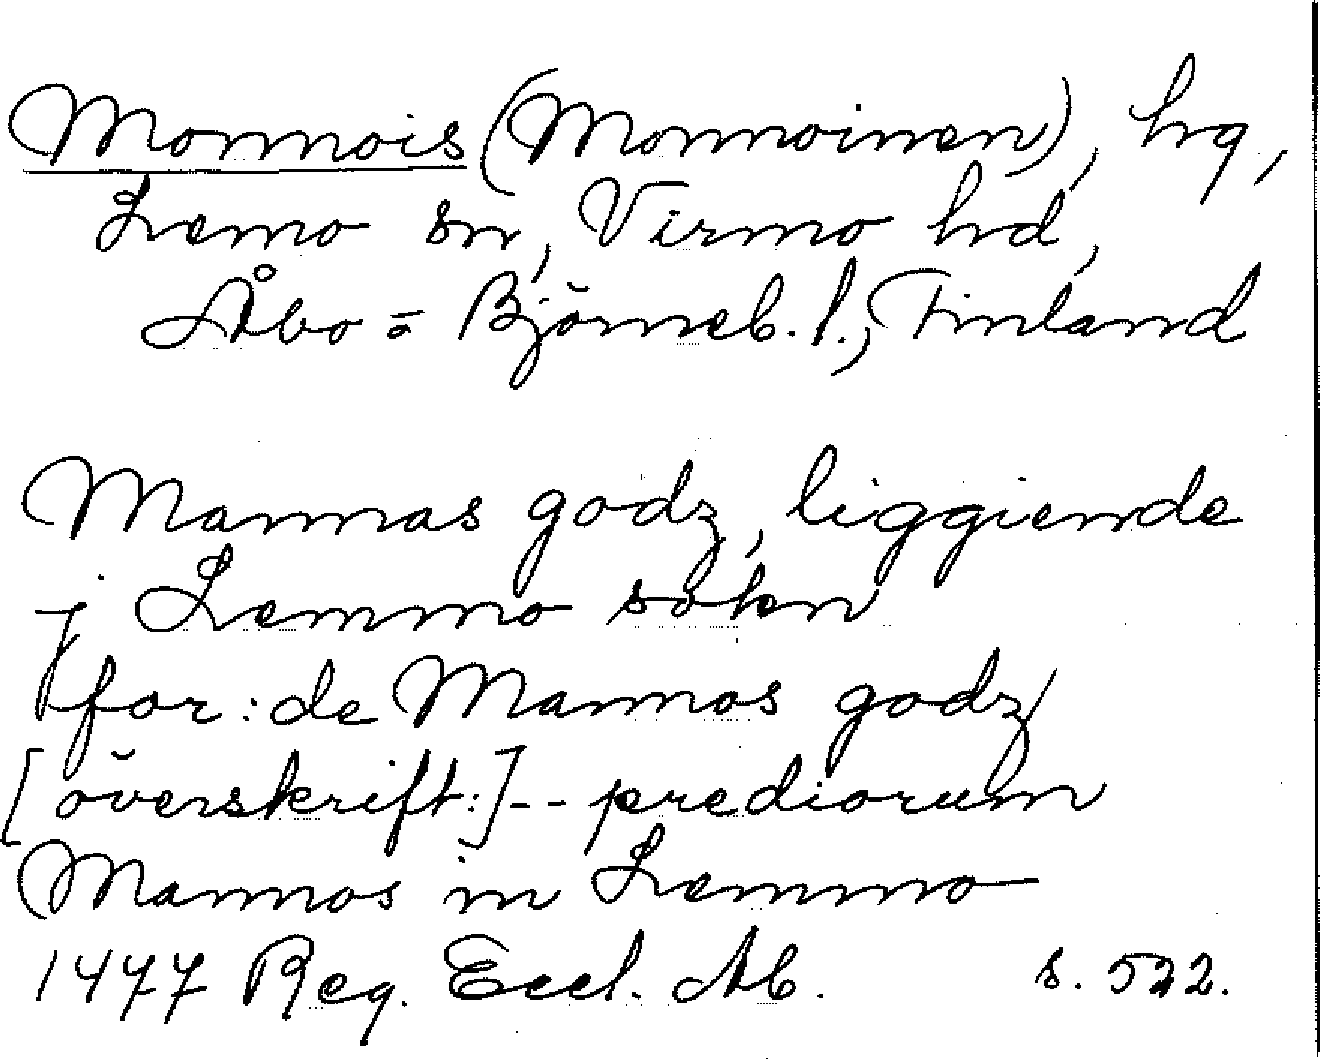 Monnois (Monnoinen), hg,
Lemo sn, Virmo hd,
Åbo = Björneb. l., Finland
Mannas godz, liggiende
j Lemmo sokn
for: de Mannos godz
[överskift:] -- prediorum
Mannos in Lemmo
1477 Reg. Eccl. Ab. s. 522.